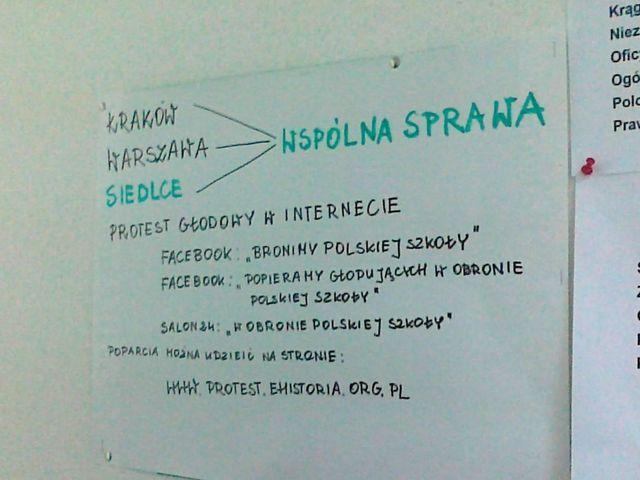 KRAKÓW
WARSZAWA
SIEDLCE
WSPÓLNA SPRAWA
PROTEST GŁODOWY W INTERNECIE
FACEBOOK: „BRONIMY POLSKIEJ SZKOŁY"
FACEBOOK: „POPIERAMY GŁODUJĄCYCH W OBRONIE
POLSKIEJ SZKOŁY"
SALON24: „W OBRONIE POLSKIEJ SZKOŁY"
POPARCIA MOŻNA UDZIELIĆ NA STRONIE:
WWW.PROTEST.EHISTORIA.ORG.PL
Krąg
Niez
Ofic
Ogó
Polo
Praw